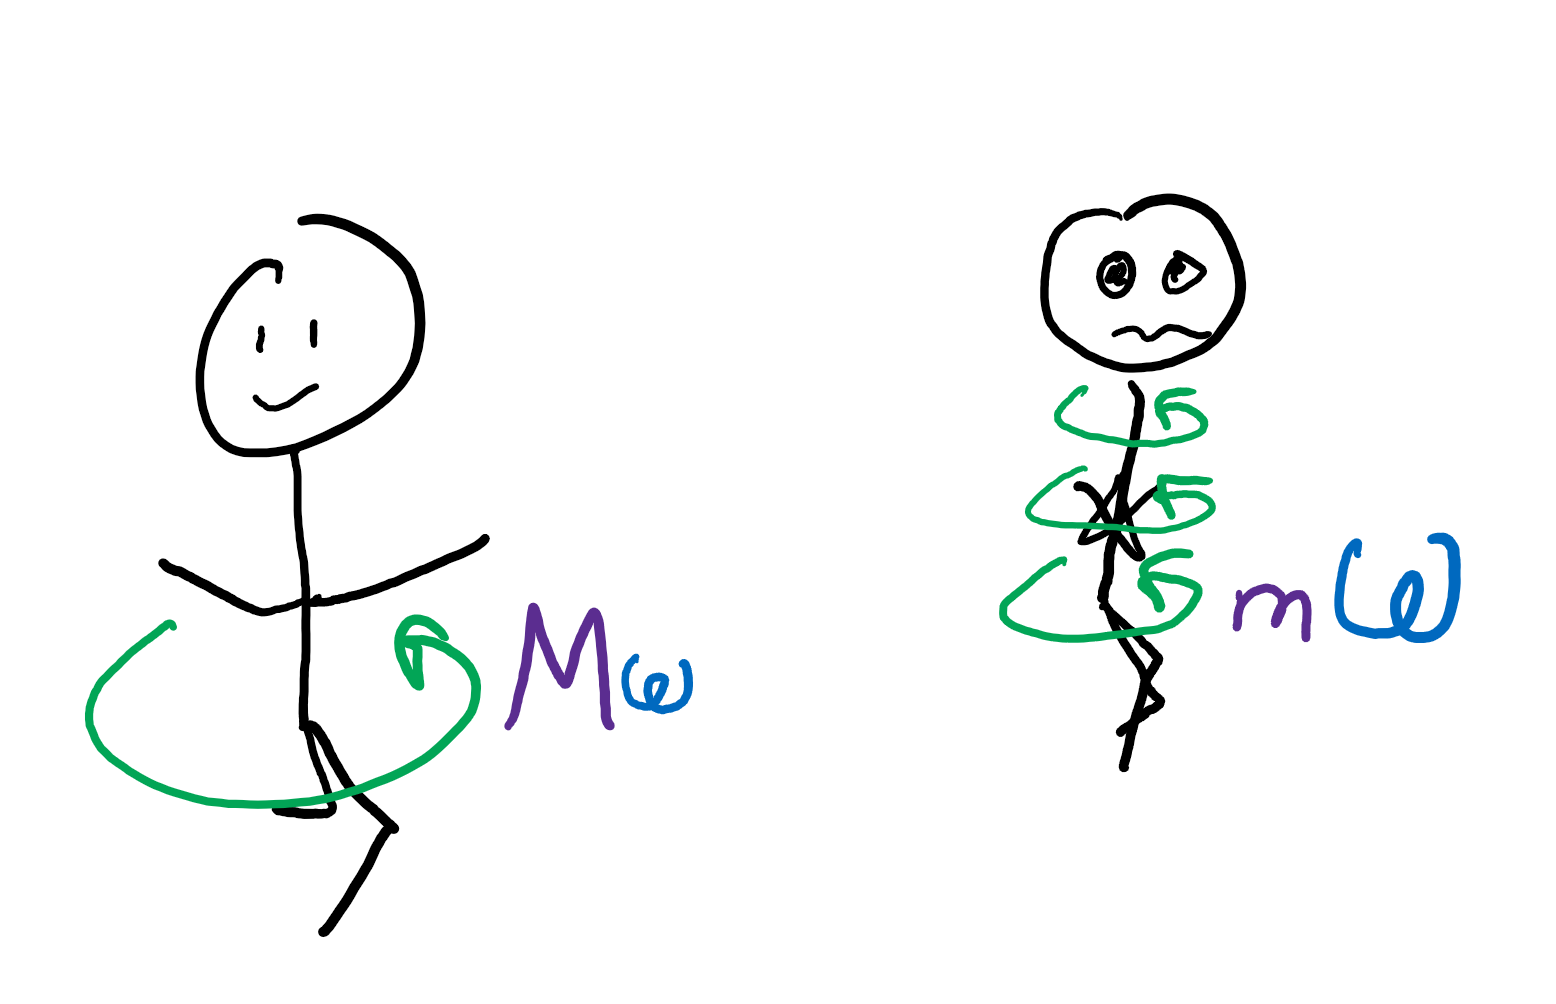 Mω
mω